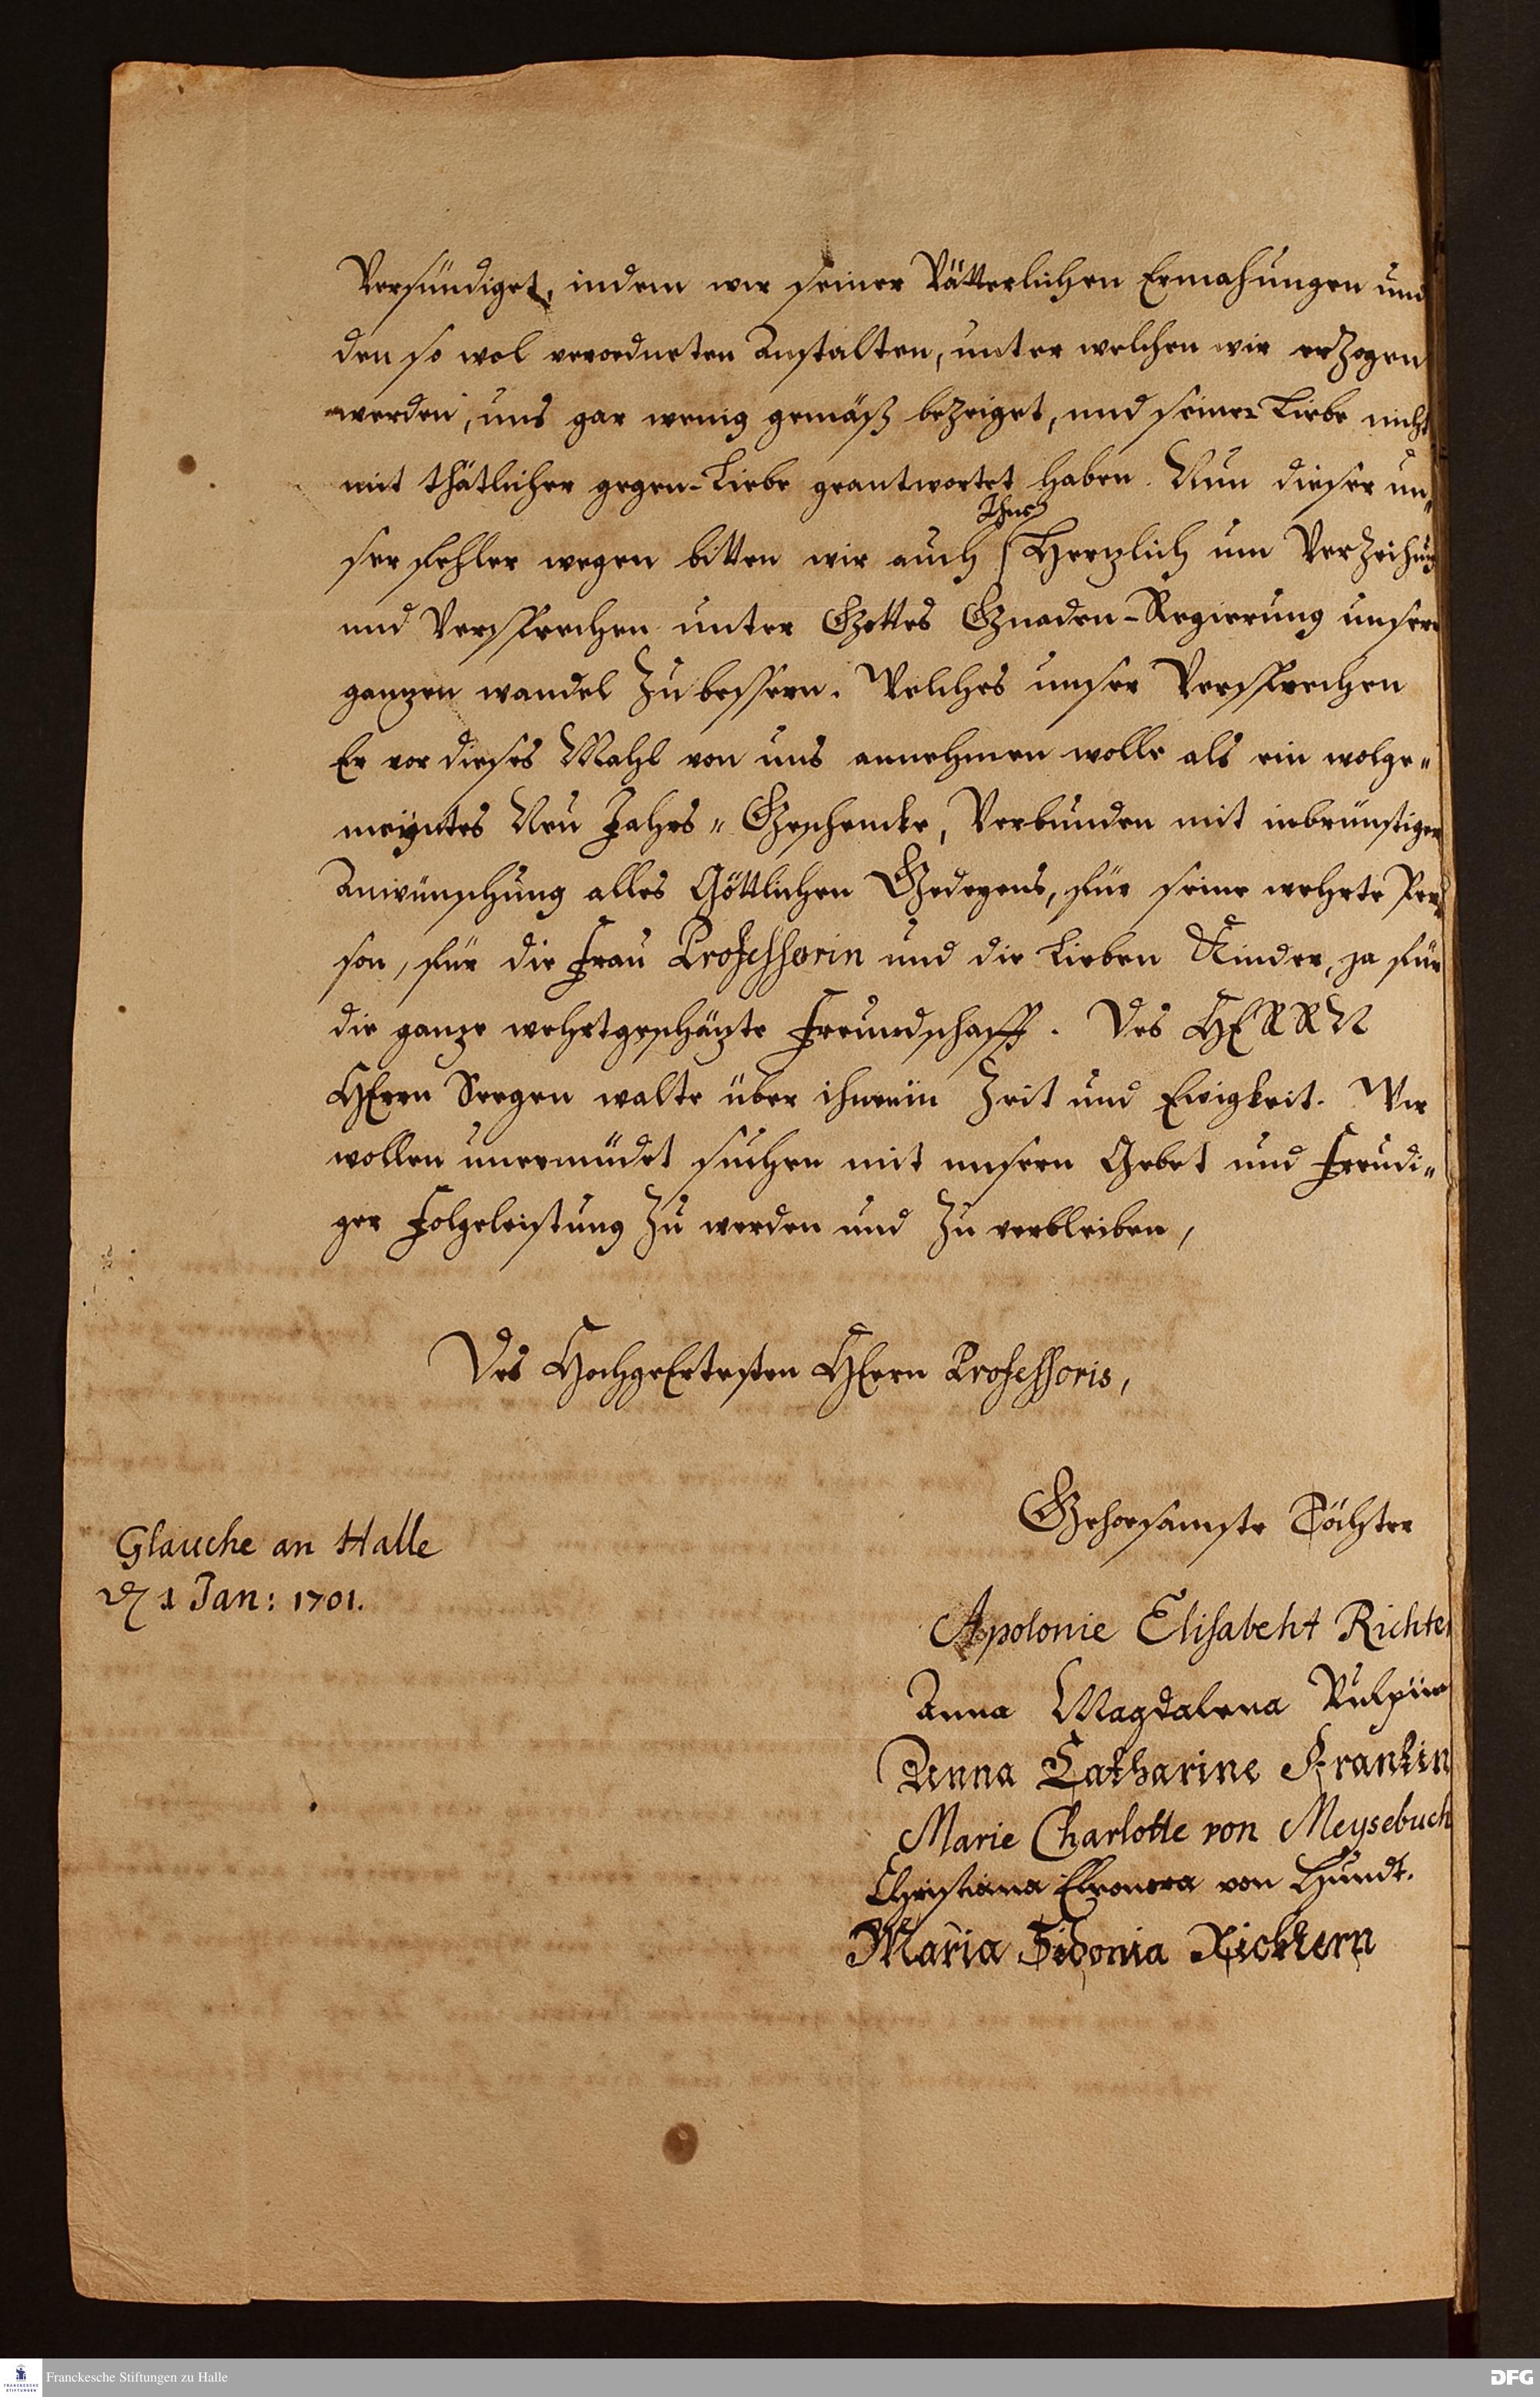 Versündiget, indem wir seiner Vätterlichen Ermahungen und
den so wol verordneten Anstalten, unter welchen wir erzogen
werden, uns gar wenig gemäß bezeiget, und seiner Liebe nicht
mit thätlicher gegen-Liebe geantwortet haben. Nun dieser un„
Ihn
ser fehler wegen bitten wir auch Hertzlich um Verzeihung
und Versprechen unter Gottes Gnaden-Regierung unsern
gantzen wandel Zu bessern. Welches unser Versprechen
Er vor dieses Mahl von uns annehmen wolle als ein wolge„
meyntes Neu Jahrs„Geschencke, Verbunden mit inbrünstiger
Anwünschung alles Göttlichen Gedeyens, für seine wehrte Per„
son, für die Frau Professorin und die Lieben Kinder, ja für
die gantze wehrtgeschätzte Freundschafft. Des HERRN
HErrn Seegen walte über ihnen in Zeit und Ewigkeit. Wir
wollen unermüdet suchen mit unsern Gebet und Freudi„
ger Folgeleistung Zu werden und Zu verbleiben,
Des HochgeErtesten HErrn Professoris,
Gehorsamste Töchter
Glauche an Halle
1 Jan: 1701.
Apolonie Elisabeht Richter
Anna Magdalena Vulpiin
Anna Catharine Frankin
Marie Charlotte von Meysebuch
Christiana Eleonora von Hundt.
Maria Sidonia Richtern
Franckesche Stiftungen zu Halle
DFG